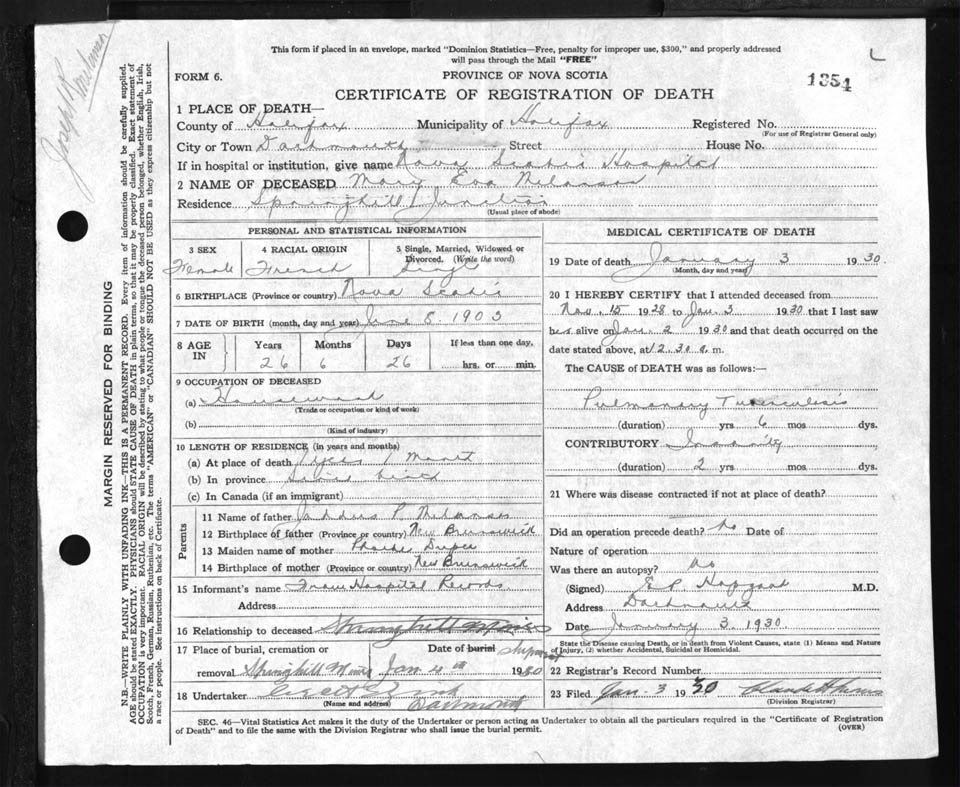 This form if placed in an envelope, marked "Dominion Statistics—Free, penalty for improper use, $300," and properly addressed
will pass through the Mail "FREE"
L
FORM 6.
PROVINCE OF NOVA SCOTIA
1354
CERTIFICATE OF REGISTRATION OF DEATH
1 PLACE OF DEATH—
County of Halifax Municipality of Halifax Registered No.
(For use of Registrar General only)
City or Town Dartmouth Street House No.
If in hospital or institution, give name Nova Scotia Hospital
2 NAME OF DECEASED Mary Eva Melanson
Residence Springhill Junction
(Usual place of abode)
PERSONAL AND STATISTICAL INFORMATION
3 SEX 4 RACIAL ORIGIN 5 Single, Married, Widowed or
Divorced. (Write the word)
Female French Single
6 BIRTHPLACE (Province or country) Nova Scotia
7 DATE OF BIRTH (month, day and year) June 8. 1903
8 AGE IN Years Months Days If less than one day,
26 6 26 hrs. or min.
9 OCCUPATION OF DECEASED
(a) Housework
(Trade or occupation or kind of work)
(b)
(Kind of industry)
10 LENGTH OF RESIDENCE (in years and months)
(a) At place of death 1 Month
(b) In province Since birth
(c) In Canada (if an immigrant)
Parents
11 Name of father P. Melanson
12 Birthplace of father (Province or country) New Brunswick
13 Maiden name of mother Phoebe Dupee
14 Birthplace of mother (Province or country) New Brunswick
15 Informant's name From Hospital Records
Address
16 Relationship to deceased Springhill Mines
17 Place of burial, cremation or Date of burial shipment
removal Springhill Mines Jan 4th 1930
18 Undertaker
(Name and address) Dartmouth
MEDICAL CERTIFICATE OF DEATH
19 Date of death January 3 1930.
(Month, day and year)
20 I HEREBY CERTIFY that I attended deceased from
Nov. 15 1928 to Jan. 3 1930 that I last saw
her alive on Jan. 2 1930 and that death occurred on
date stated above, at 12.30 a.m.
The CAUSE of DEATH was as follows:—
Pulmonary Tuberculosis
(duration) yrs 6 mos dys.
CONTRIBUTORY Insanity
(duration) 2 yrs mos dys.
21 Where was disease contracted if not at place of death?
Did an operation precede death? No Date of
Nature of operation
Was there an autopsy? No
(Signed) M.D.
Address Dartmouth
Date January 3. 1930.
State the Disease causing Death, or in Death from Violent Causes, state (1) Means and Nature
of Injury, (2) whether Accidental, Suicidal or Homicidal.
22 Registrar's Record Number
23 Filed, Jan. 3 1930
(Division Registrar)
SEC. 46—Vital Statistics Act makes it the duty of the Undertaker or person acting as Undertaker to obtain all the particulars required in the "Certificate of Registration
of Death" and to file the same with the Division Registrar who shall issue the burial permit.
(OVER)
MARGIN RESERVED FOR BINDING
N.B.—WRITE PLAINLY WITH UNFADING INK—THIS IS A PERMANENT RECORD. Every item of information should be carefully supplied.
AGE should be stated EXACTLY. PHYSICIANS should STATE CAUSE OF DEATH in plain terms, so that it may be properly classified. Exact statement of
OCCUPATION is very important. RACIAL ORIGIN will be described by stating to what people or tongue the deceased person belonged, whether English, Irish,
Scotch, French, German, Russian, Ruthenian, etc. The terms "AMERICAN" or "CANADIAN" SHOULD NOT BE USED as they express citizenship but not
a race or people. See instructions on back of Certificate.